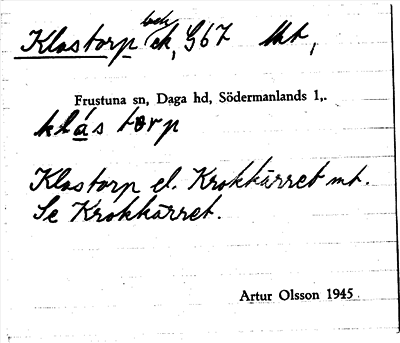 Klastorp ek, G67
Frustuna sn, Daga hd, Södermanlands l,.
klás torp
Klastorp el. Krokkärret mt.
Se Krokkärret.
Artur Olsson 1945